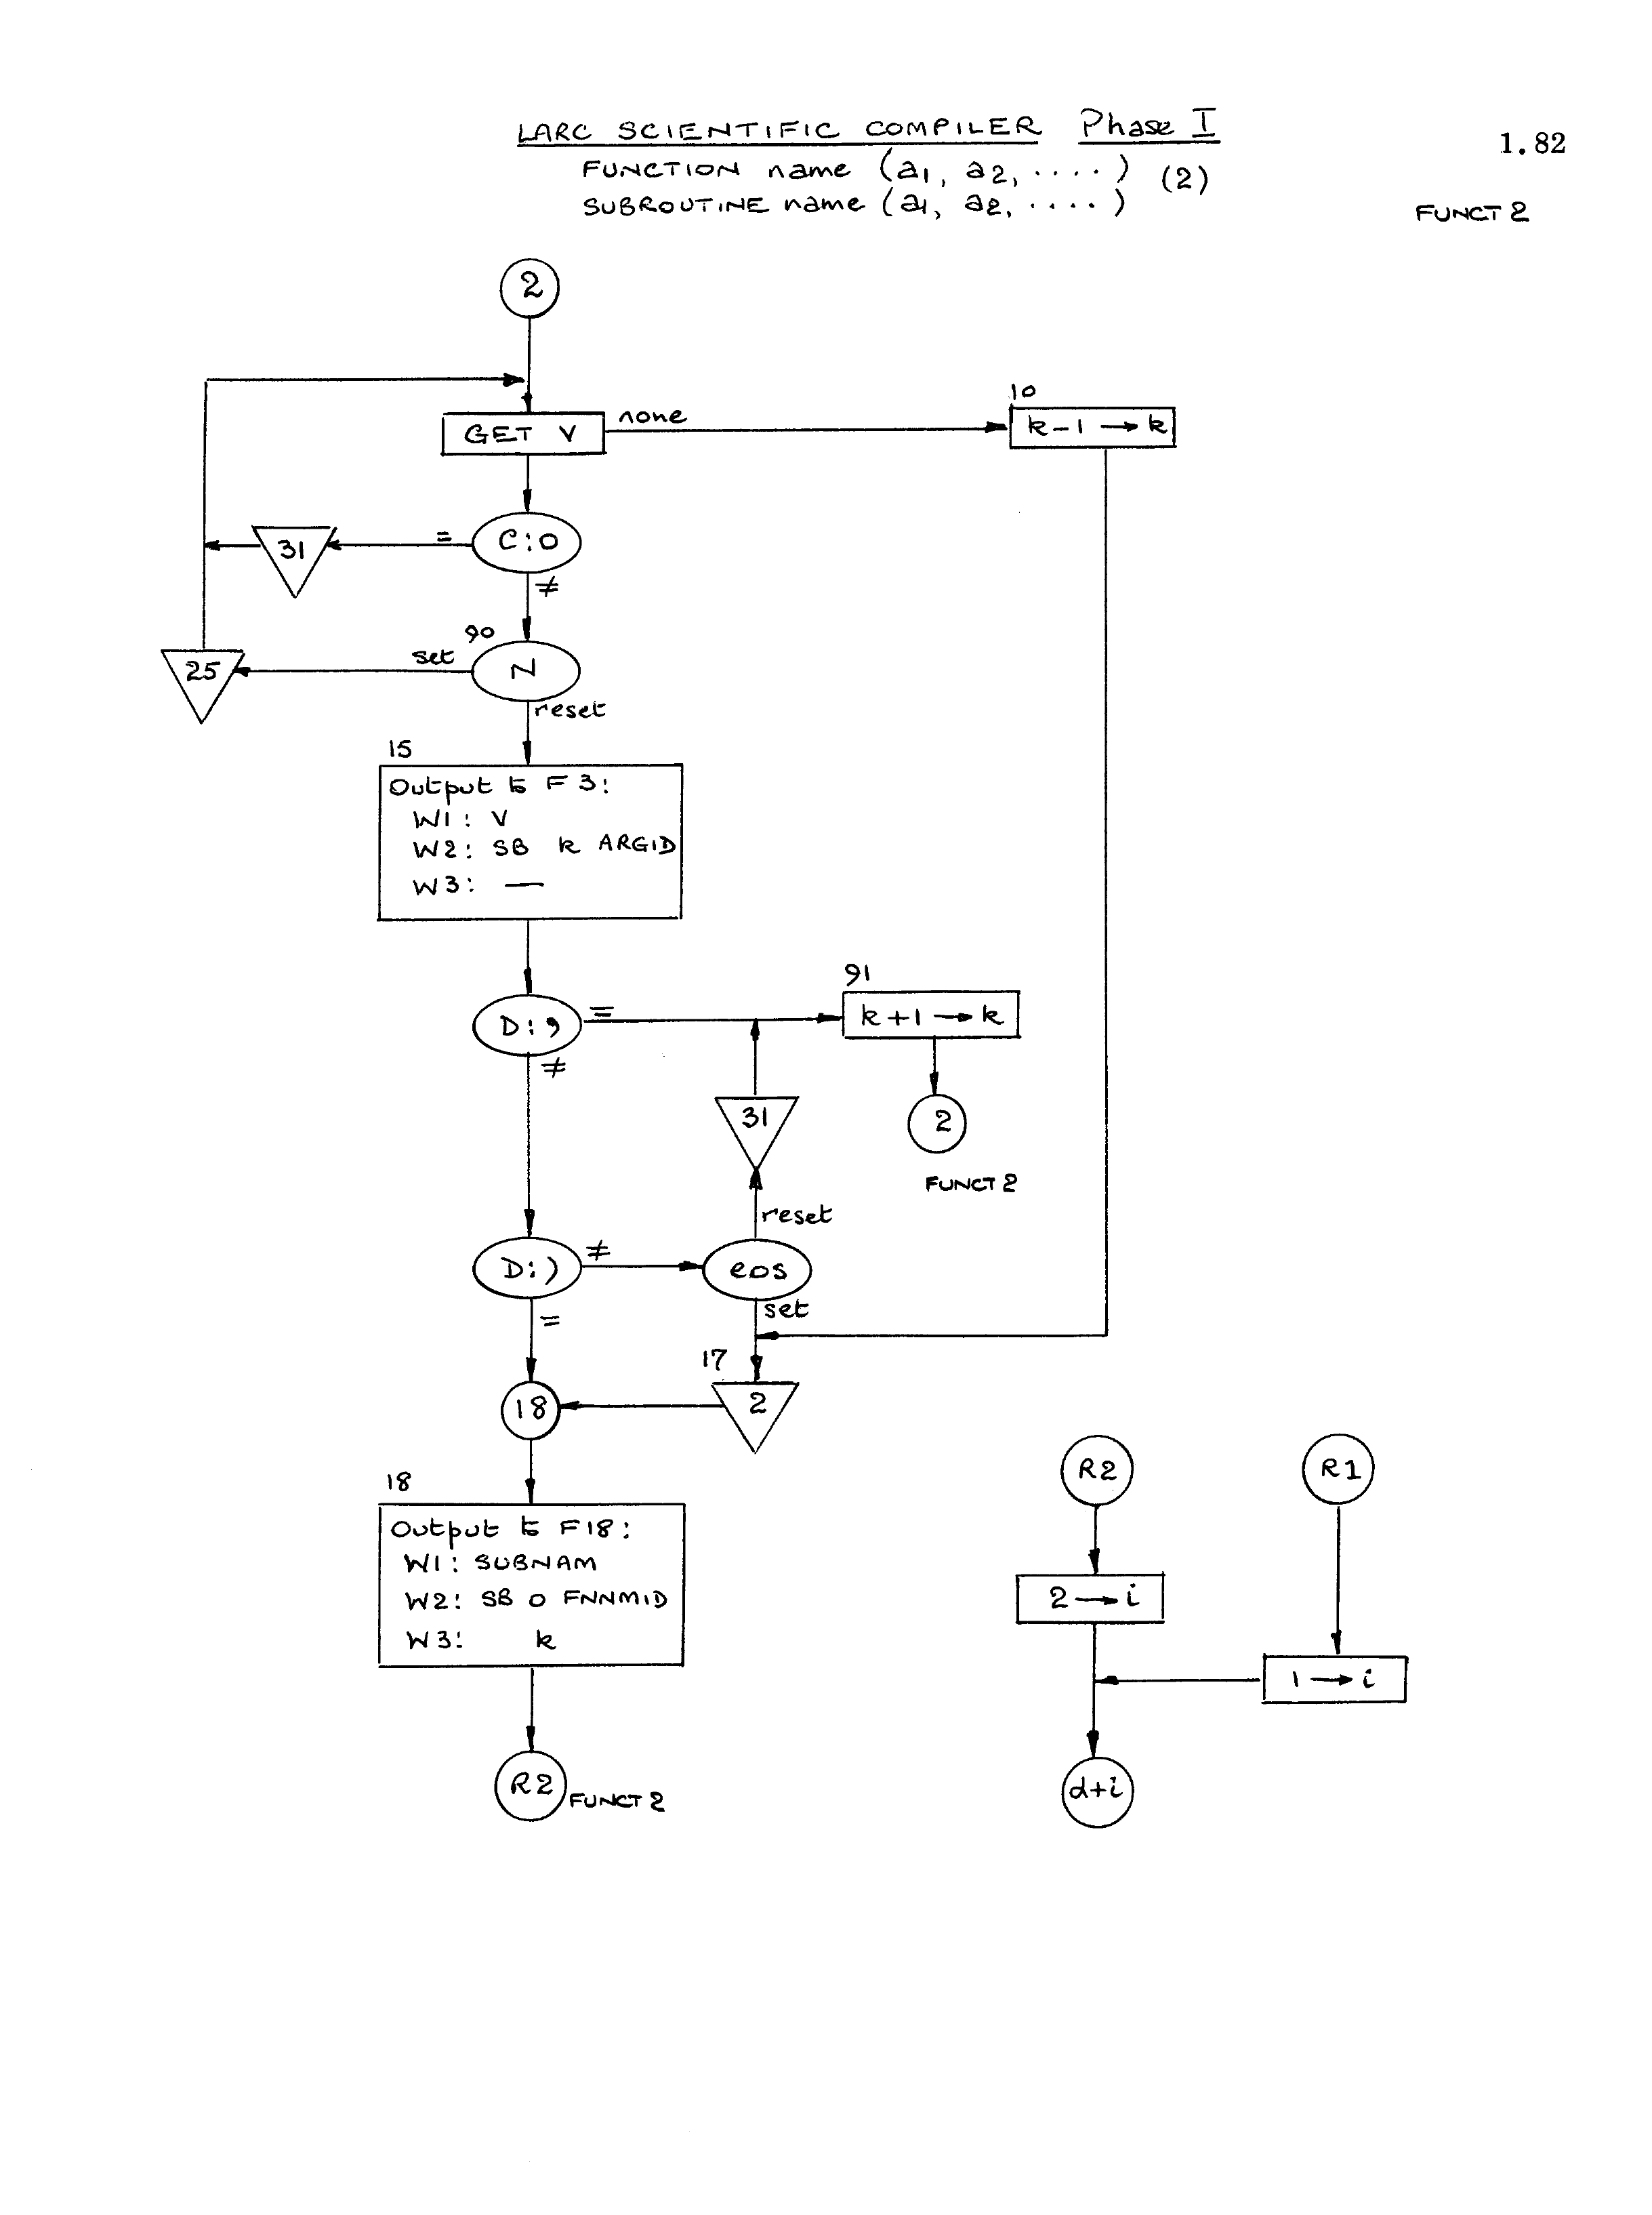 LARC SCIENTIFIC COMPILER Phase I
1.82
FUNCTION name (a1, a2, ....)
(2)
SUBROUTINE name (a1, a2, ....)
FUNCT 2
2
10
GET V
none
k-1 → k
31
=
C:0
≠
90
25
set
N
reset
15
Output to F3:
W1: V
W2: SB k ARGID
W3: —
91
D:,
=
k+1 → k
≠
31
2
FUNCT 2
reset
D:)
≠
eos
set
=
17
18
2
18
Output to F18:
W1: SUBNAM
W2: SB 0 FNNMID
W3: k
R2
FUNCT 2
R2
R1
2 → i
1 → i
α+i